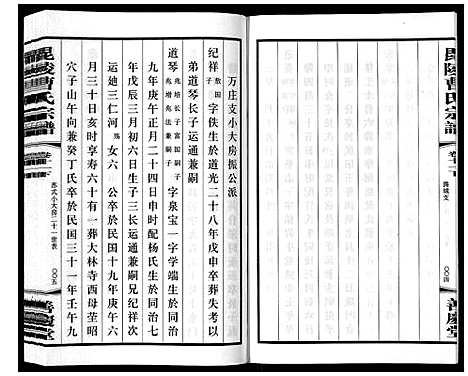 毘陵曹氏宗譜
卷十一下
善慶堂
万庄支小大房振公派
纪祥 敖国子 字佚生於道光二十八年戊申卒葬失考以
弟道琴长子运通兼嗣
道琴 兆培长子富国嗣子兆增兆法兼嗣子 字泉宝一字学端生於同治
九年庚午正月二十四日申时配杨氏生於同治七
年戊辰三月初六日生子三长运通兼嗣兄纪祥次
运迪三仁河殇女六 公卒於民国十九年庚午六
月三十日亥时享寿六十有一葬大林寺西母茔昭
穴子山午向兼癸丁氏卒於民国三十一年壬午九
毘陵曹氏宗譜
卷十一下
苏式小大房二十一世表
〇〇五
善慶堂